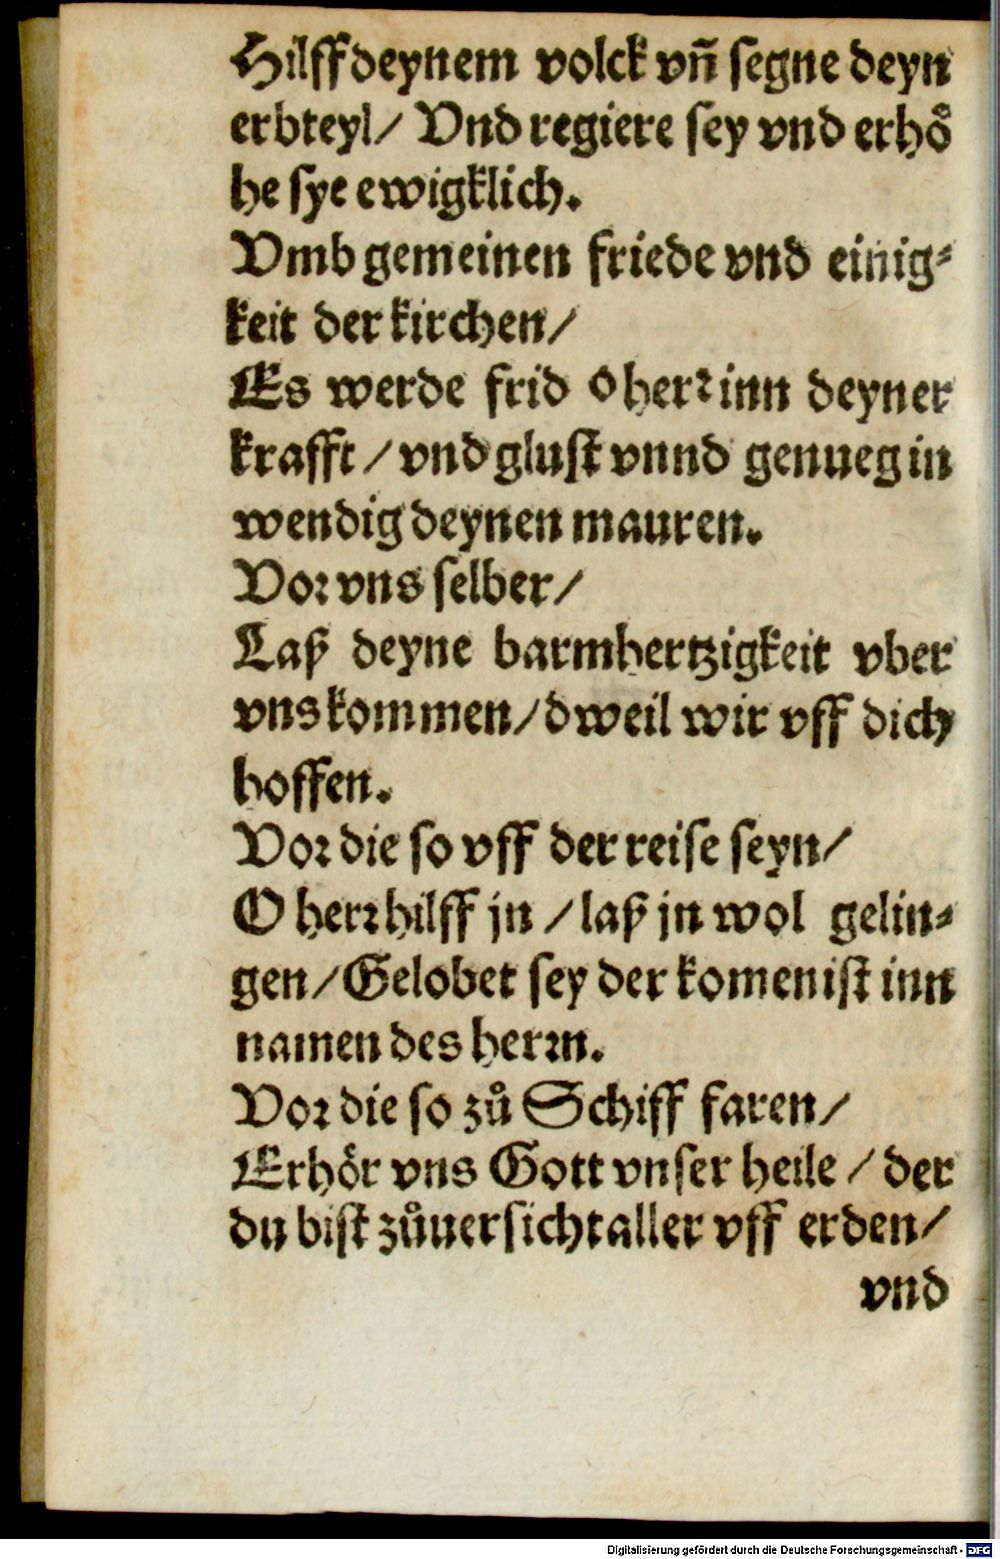 Hilff deynem volck vñ segne deyn
erbteyl/ Vnd regiere sey vnd erhoͤ
he sye ewigklich.
Vmb gemeinen friede vnd einig⸗
keit der kirchen/
Es werde frid o herꝛ inn deyner
krafft / vnd glust vnnd genueg in
wendig deynen mauren.
Voꝛ vns selber/
Laß deyne barmhertzigkeit vber
vns kommen/ dweil wir vff dich
hoffen.
Voꝛ die so vff der reise seyn/
O herꝛ hilff jn / laß jn wol gelin⸗
gen/ Gelobet sey der komen ist inn
namen des herꝛn.
Voꝛ die so zuͦ Schiff faren/
Erhoͤr vns Gott vnser heile / der
du bist zuͦuersicht aller vff erden/
vnd
Digitalisierung gefördert durch die Deutsche Forschungsgemeinschaft - DFG